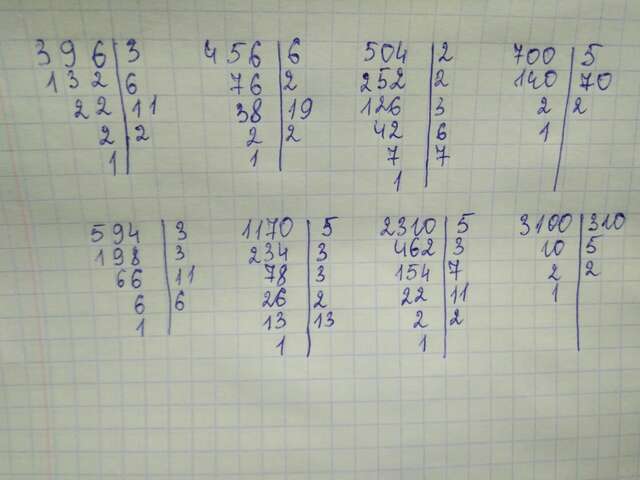 396 3 456 6 504 2 700 5
132 6 76 2 252 2 140 70
22 11 38 19 126 3 2 2
2 2 2 2 42 6 1
1 1 7 7
1
594 3 1170 5 2310 5 3100 310
198 3 234 3 462 3 10 5
66 11 78 3 154 7 2 2
6 6 26 2 22 11 1
1 13 13 2 2
1 1